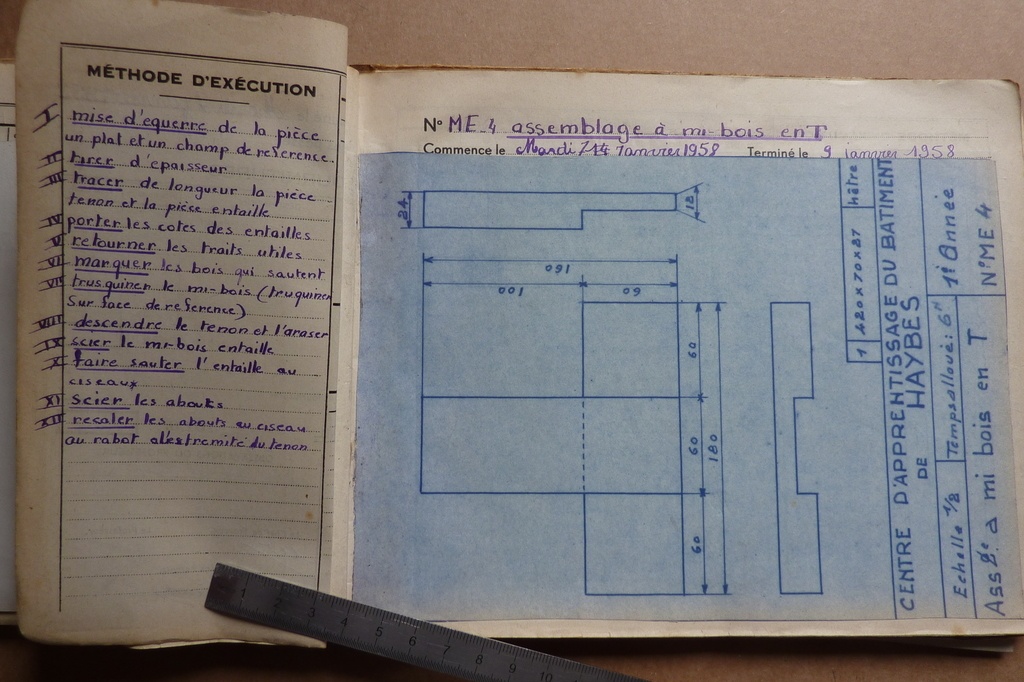 MÉTHODE D'EXÉCUTION
I mise d'equerre de la pièce
un plat et un champ de reference.
II tirer d'epaisseur
III tracer de longueur la pièce
tenon et la pièce entaille
IV porter les cotes des entailles
V retourner les traits utiles
VI marquer les bois qui sautent
VII trusquiner le mi-bois (truquiner
sur face de reference)
VIII descendre le tenon et l'araser
IX scier le mi-bois entaille
X faire sauter l'entaille au
ciseaux
XI scier les abouts
XII recaler les abouts au ciseau
au rabot a l'extremité du tenon
N° ME_4 assemblage à mi-bois en T
Commence le Mardi Janvier 1958 Terminé le 9 janvier 1958
24
18
160
100
60
60
60
180
60
1 420 x 70 x 27 hêtre
CENTRE D'APPRENTISSAGE DU BATIMENT
DE
HAYBES
Echelle 1/2 Temps alloué: 6H 1e Année
Assge à mi bois en T N° ME 4
1 2 3 4 5 6 7 8 9 10